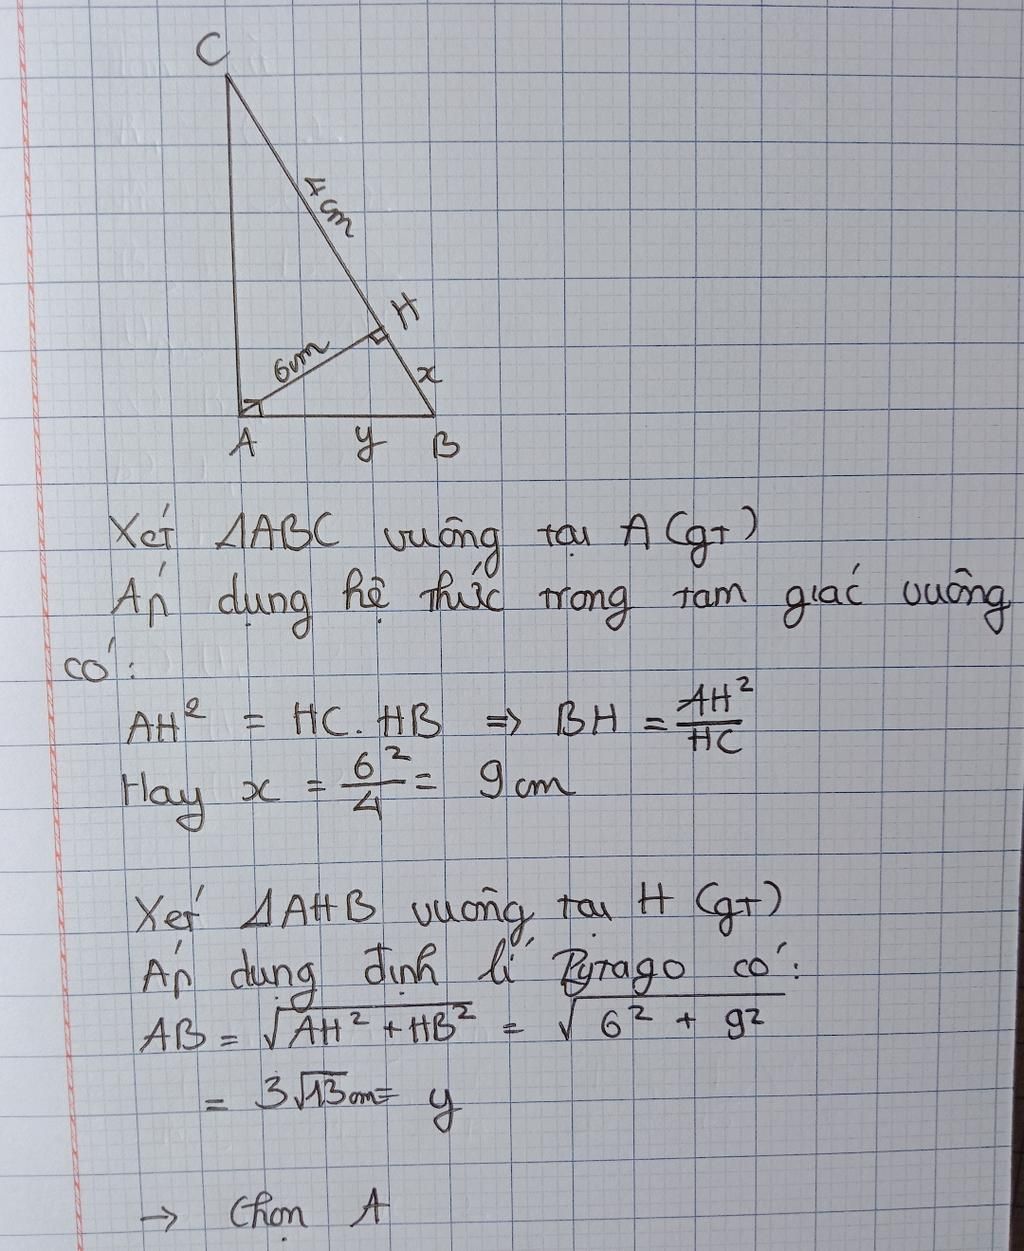 C
4cm
H
6cm
x
A y B
Xét ΔABC vuông tại A (gt)
Áp dụng hệ thức trong tam giác vuông
có:
AH² = HC. HB => BH = AH²/HC
Hay x = 6²/4 = 9cm
Xét ΔAHB vuông tại H (gt)
Áp dụng định lí Pytago có:
AB = √(AH² + HB²) = √(6² + 9²)
= 3√13cm = y
→ Chọn A